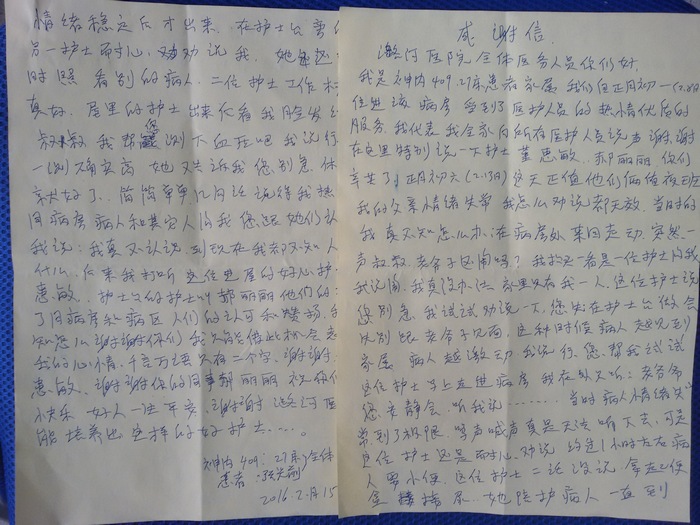 感谢信
潞河医院全体医务人员你们好.
我是神内409.27床患者家属 我们在正月初一(2.8日)
住进该病房 受到了医护人员的热情优质的
服务.我代表我全家向所有医护人员说声谢谢
在这里特别说一下护士 董思敏、郝丽丽你们
辛苦了,正月初六(2.13日)这天正值他们俩值夜班
我的父亲情绪失常 我怎么劝说都无效.当时的
我真不知怎么办:在病房外来回走动.突然一
声叔叔.老爷子还闹吗?我抬头一看是一位护士问我
我说闹.我真没办法.家里只有我一人.这位护士说
您别急.我试试劝说一下,您先在护士台做会
家属 病人越激动 我说行.您帮我试试
这位护士马上走进病房 我在外只听:老爷爷
您安静会.听我说........当时病人情绪失
常到了极限.骂声喊声真是无法听下去,可是
这位护士还是耐心劝说 约过1小时左右病
人要小便.这位护士二话没说.拿起小便
她陪护病人一直到
情绪稳定后才出来.在护士台
另一护士耐心劝说我.
时照看别的病人.二位护士工作
真好.屋里的护士出来后看我脸发
叔叔我帮您测下血压吧 我说行
一测确实高 她又告诉我您别急.休
就好了.简简单单几句话说得我
同病房病人和其家人问我您跟她们认
我说:我真不认识 到现在我都不知人
什么.后来我打听这位进屋的好心护
思敏.护士台的护士叫郝丽丽他们的
了同病房和病区人们的认可和赞扬,
知怎么谢谢你们 我只能借此机会
我的心情.千言万语只有二个字.谢谢.
思敏.谢谢你的同事郝丽丽 祝
快乐 好人一生平安.谢谢潞河医
能培养出这样的好护士.....
神内409:27床全体
患者:张
2016.2月15